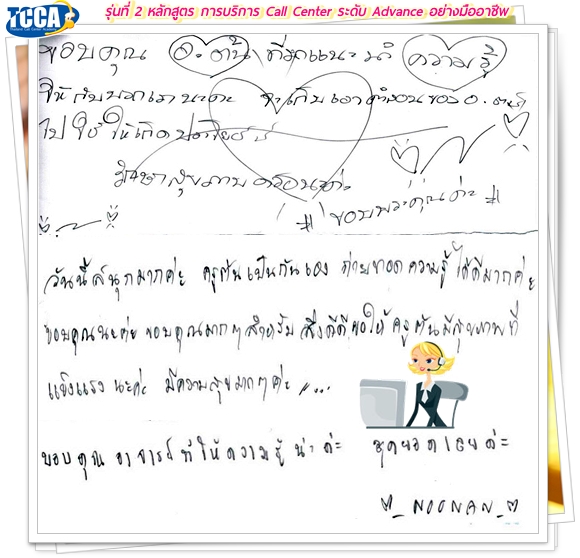 TCCA
รุ่นที่ 2 หลักสูตร การบริการ Call Center ระดับ Advance อย่างมืออาชีพ
ขอบคุณ อ.ตั้น ที่มาแนะนำ ความรู้
ให้กับพวกเรานะคะ จะเก็บเอาคำสอนของ อ.
ไปใช้ให้เกิดประโยชน์
รักษาสุขภาพด้วยนะคะ
# ขอบพระคุณค่ะ #
วันนี้สนุกมากค่ะ ครูตั้นเป็นกันเอง ถ่ายทอดความรู้ได้ดีมากค่ะ
ขอบคุณนะคะ ขอบคุณมากๆสำหรับ สิ่งดีดี ขอให้ครูตั้นมีสุขภาพที่
แข็งแรงนะคะ มีความสุขมากๆค่ะ //...
ขอบคุณ อาจารย์ ที่ให้ความรู้ น่ะค่ะ สุดยอดเลยค่ะ
♥_NOONAN_♥